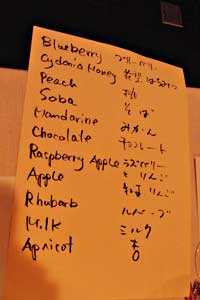 Blueberry ブルーベリー
Cydonia Honey 花梨はちみつ
Peach 桃
Soba そば
Mandarine みかん
Chocolate チョコレート
Raspberry Apple ラズベリーとりんご
Apple りんご
Rhubarb ルバーブ
Milk ミルク
Apricot 杏